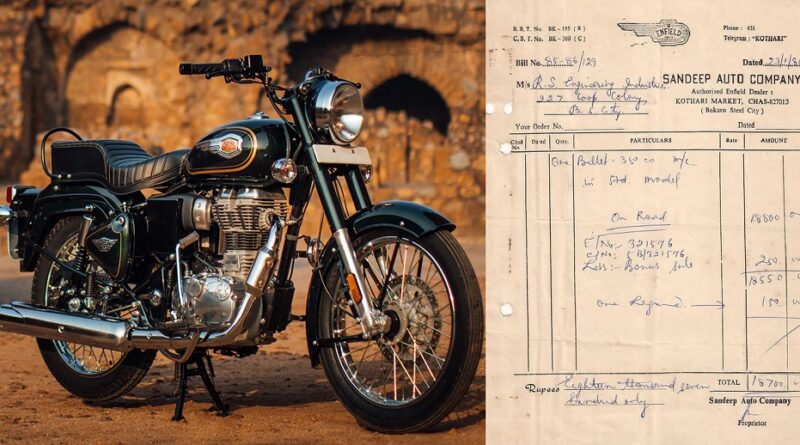 ROYAL ENFIELD
B.S.T. No. BK-195 ( R )
C.S.T. No. BK-360 ( C )
ENFIELD
Phone : 631
Telegram : "KOTHARI"
Bill No. 85-86/129
Dated
M/s R.S. Engineering Industries
227 Coop Colony
B. S. City
SANDEEP AUTO COMPANY
Authorised Enfield Dealer :
KOTHARI MARKET, CHAS-827013
( Bokaro Steel City )
Your Order No. Dated
Chal No. Dated Qnty. PARTICULARS Rate AMOUNT
One Bullet - 350 cc m/c
in Std. model
On Road 18800
E/No.- 321576
C/No.- 5B/321576
Less: Bonus 250
18550
One 150
Rupees Eighteen thousand seven TOTAL 18700
hundred only
Sandeep Auto Company
Proprietor